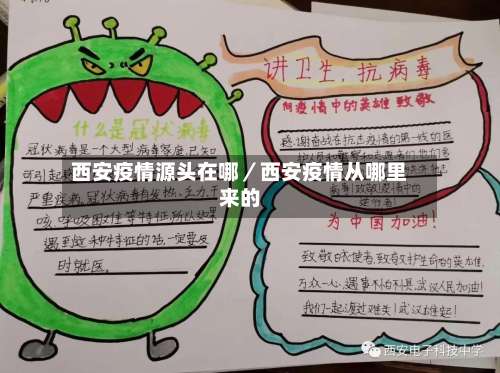 讲卫生,抗病毒
什么是冠状病毒
冠状病毒是一个大型病毒家庭,已知
可引起
严重疾病,冠状病毒有发热,乏力,干
咳,呼吸困难等特征,所以如果
遇到这种特征的话,一定要及
时就医。
向疫情中的英雄致敬
感谢奋战在抗击疫情的第一线的医
为中国加油!
致敬白衣使者,致敬护生命的英雄,
万众一心,遇事不怕不惧,武汉人民加油!
我们一起渡过难关!武汉雄起!
西安疫情源头在哪/西安疫情从哪里
来的
西安电子科技中学